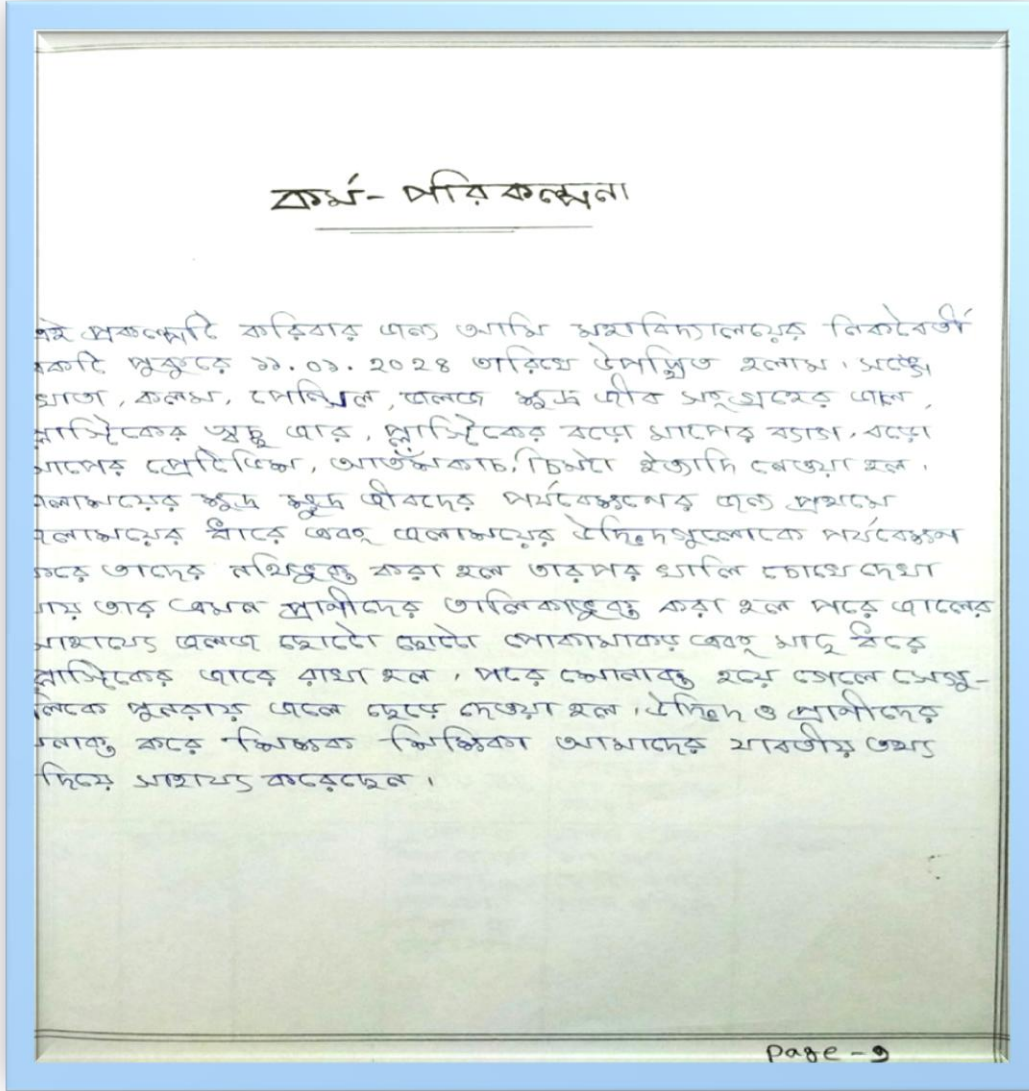 কর্ম- পরিকল্পনা
এই প্রকল্পটি করিবার জন্য আমি মহাবিদ্যালয়ের নিকটবর্তী
একটি পুকুরে ১১.০১.২০২৪ তারিখে উপস্থিত হলাম। সঙ্গে
খাতা, কলম, পেন্সিল, জলজ ক্ষুদ্র জীব সংগ্রহের জাল,
প্লাস্টিকের স্বচ্ছ জার, প্লাস্টিকের বড়ো মাপের ব্যাগ, বড়ো
মাপের পেট্রিডিস, আতসকাচ, চিমটা ইত্যাদি নেওয়া হল।
জলাশয়ের ক্ষুদ্র ক্ষুদ্র জীবদের পর্যবেক্ষণের জন্য প্রথমে
জলাশয়ের ধারে এবং জলাশয়ের উদ্ভিদগুলোকে পর্যবেক্ষণ
করে তাদের নথিভুক্ত করা হল তারপর খালি চোখে দেখা
যায় তার এমন প্রাণীদের তালিকাভুক্ত করা হল পরে জালের
সাহায্যে জলজ ছোটো ছোটো পোকামাকড় এবং মাছ ধরে
প্লাস্টিকের জারে রাখা হল, পরে শোনাক্ত হয়ে গেলে সেগু-
লিকে পুনরায় জলে ছেড়ে দেওয়া হল। উদ্ভিদ ও প্রাণীদের
শনাক্ত করে শিক্ষক শিক্ষিকা আমাদের যাবতীয় তথ্য
দিয়ে সাহায্য করেছেন।
Page - 9